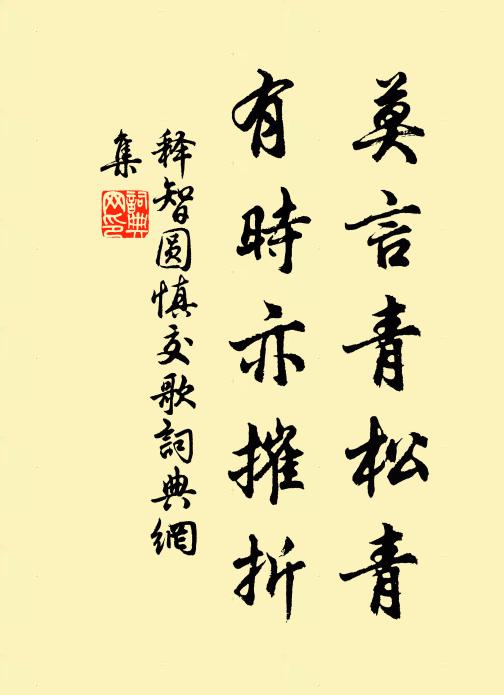 莫言青松青
有時亦摧折
释智圆慎交歌詞典網
集
詞典網印